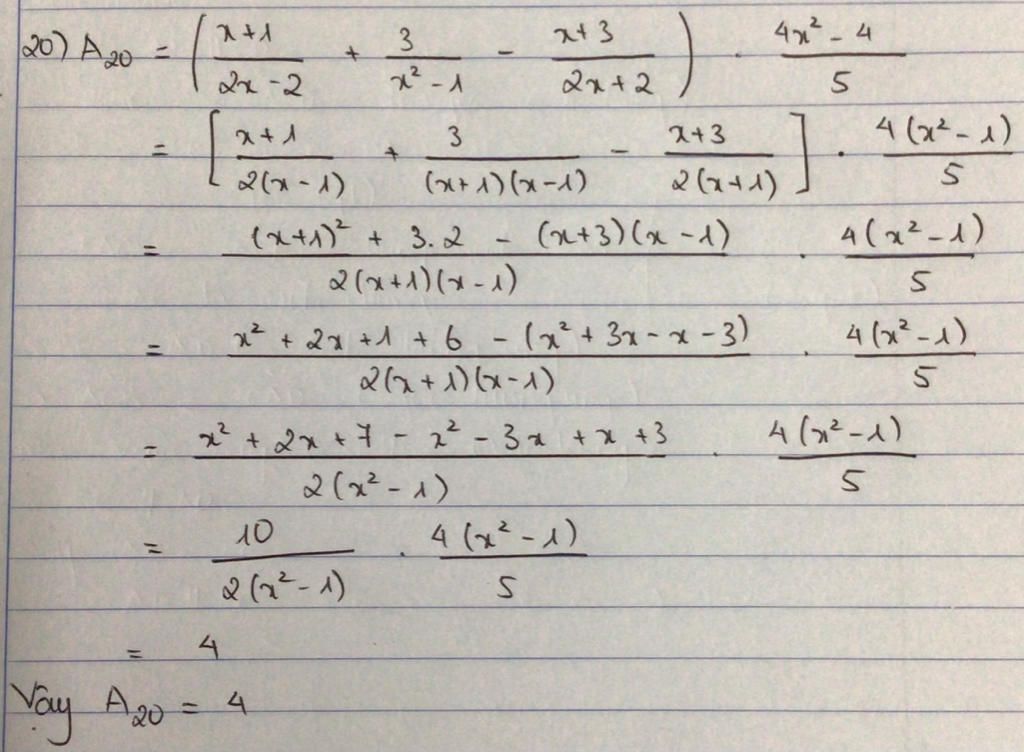 20) A₂₀ = ( (x+1)/(2x-2) + 3/(x²-1) - (x+3)/(2x+2) ) . (4x²-4)/5
= [ (x+1)/(2(x-1)) + 3/((x+1)(x-1)) - (x+3)/(2(x+1)) ] . 4(x²-1)/5
= ((x+1)² + 3.2 - (x+3)(x-1))/(2(x+1)(x-1)) . 4(x²-1)/5
= (x² + 2x + 1 + 6 - (x² + 3x - x - 3))/(2(x+1)(x-1)) . 4(x²-1)/5
= (x² + 2x + 7 - x² - 3x + x + 3)/(2(x²-1)) . 4(x²-1)/5
= 10/(2(x²-1)) . 4(x²-1)/5
= 4
Vậy A₂₀ = 4